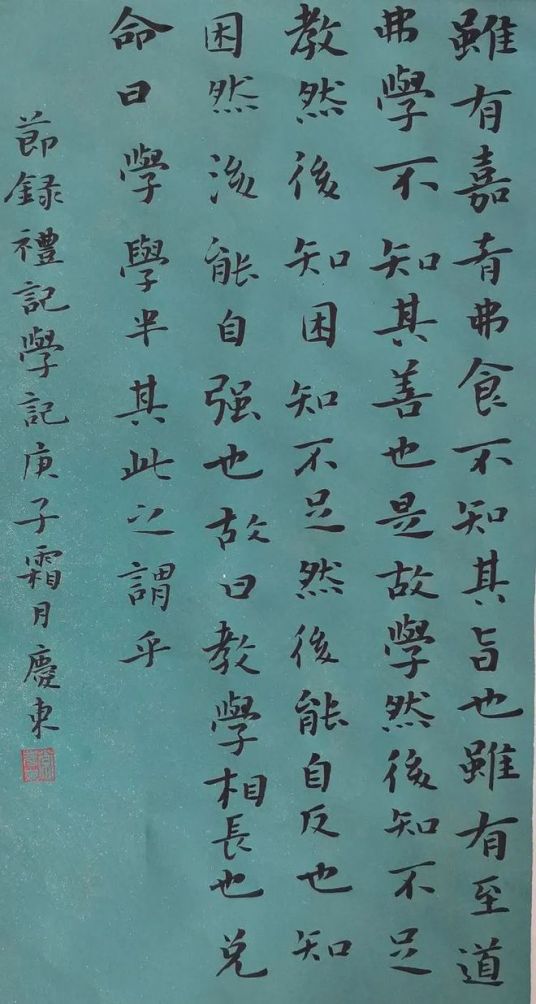 雖有嘉肴弗食不知其旨也雖有至道
弗學不知其善也是故學然後知不足
教然後知困知不足然後能自反也知
困然後能自强也故曰教學相長也兑
命曰學學半其此之謂乎
節録禮記學記庚子霜月慶東